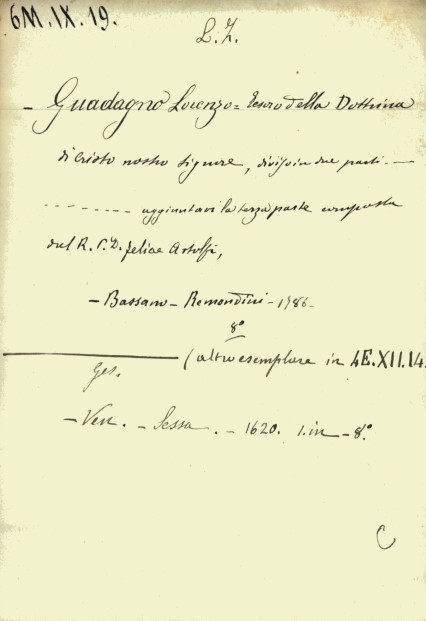 6M.IX.19.
L.Z.
- Guadagno Lorenzo = Tesoro della Dottrina
di Cristo nostro Signore, diviso in due parti.-—
- - - - - - - - aggiuntavi la terza parte composta
dal R. P. D. Felice Astolfi,
- Bassano - Remondini - 1786-
8°
(altro esemplare in 4E.XII.14.
Ges.
- Ven. - Sessa. - 1620. 1. in - 8.°
C